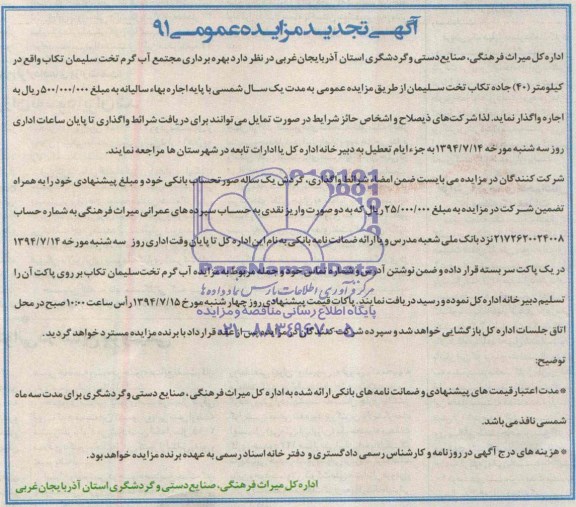 آگهی تجدید مزایده عمومی ۹۱
اداره کل میراث فرهنگی، صنایع دستی و گردشگری استان آذربایجان غربی در نظر دارد بهره برداری مجتمع آب گرم تخت سلیمان تکاب واقع در
کیلومتر (۴۰) جاده تکاب تخت سلیمان از طریق مزایده عمومی به مدت یک سال شمسی با پایه اجاره بهاء سالیانه به مبلغ ۵۰۰/۰۰۰/۰۰۰ ریال به
اجاره واگذار نماید. لذا شرکت‌های ذیصلاح و اشخاص حائز شرایط در صورت تمایل می‌توانند برای دریافت شرائط واگذاری تا پایان ساعات اداری
روز سه شنبه مورخه ۱۳۹۴/۷/۱۴ به جزء ایام تعطیل به دبیرخانه اداره کل یا ادارات تابعه در شهرستان ها مراجعه نمایند.
شرکت کنندگان در مزایده می بایست ضمن امضاء شرائط واگذاری، گردش یک ساله صورتحساب بانکی خود و مبلغ پیشنهادی خود را به همراه
تضمین شرکت در مزایده به مبلغ ۲۵/۰۰۰/۰۰۰ ریال که به دو صورت واریز نقدی به حساب سپرده های عمرانی میراث فرهنگی به شماره حساب
۲۱۷۲۶۲۰۰۲۴۰۰۸ نزد بانک ملی شعبه مدرس و یا ارائه ضمانت نامه بانکی به نام این اداره کل تا پایان وقت اداری روز سه شنبه مورخه ۱۳۹۴/۷/۱۴
در یک پاکت سر بسته قرار داده و ضمن نوشتن آدرس و شماره تماس خود و جمله مربوط به مزایده آب گرم تخت‌سلیمان تکاب بر روی پاکت آن را
تسلیم دبیرخانه اداره کل نموده و رسید دریافت نمایند. پاکات قیمت پیشنهادی روز چهارشنبه مورخ ۱۳۹۴/۷/۱۵ رأس ساعت ۱۰:۰۰ صبح در محل
اتاق جلسات اداره کل بازگشایی خواهد شد و سپرده شرکت کنندگان در مزایده پس از عقد قرارداد با برنده مزایده مسترد خواهد گردید.
توضیح:
* مدت اعتبار قیمت های پیشنهادی و ضمانت نامه های بانکی ارائه شده به اداره کل میراث فرهنگی، صنایع دستی و گردشگری برای مدت سه ماه
شمسی نافذ می باشد.
* هزینه های درج آگهی در روزنامه و کارشناس رسمی دادگستری و دفتر خانه اسناد رسمی به عهده برنده مزایده خواهد بود.
اداره کل میراث فرهنگی، صنایع دستی و گردشگری استان آذربایجان غربی
ParsNamadData
مرکز فرآوری اطلاعات پارس نماد داده‌ها
پایگاه اطلاع رسانی مناقصه و مزایده
۰۲۱-۸۸۳۴۹۶۷۰-۵